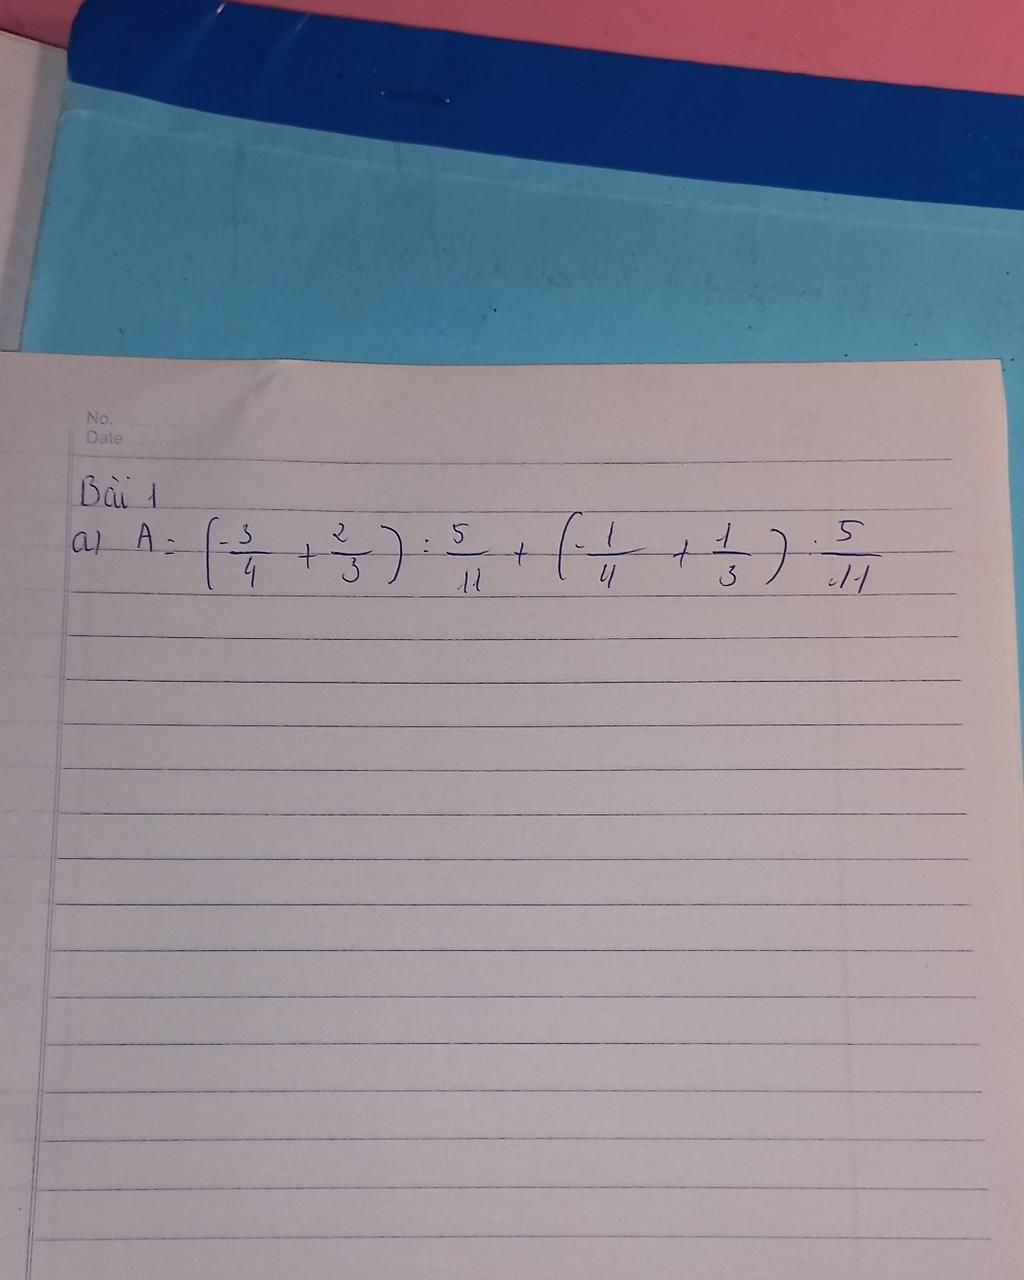 No. ..........
Date .....................
Bài 1
a) A = (-3/4 + 2/3) : 5/11 + (-1/4 + 1/3) : 5/11